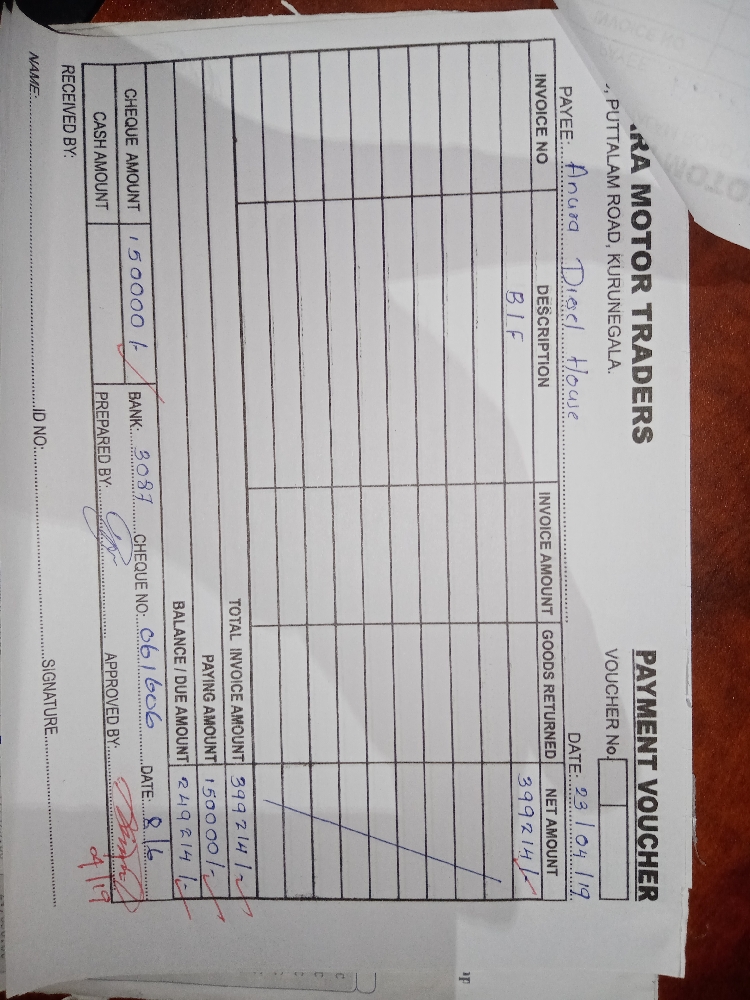 RA MOTOR TRADERS
PAYMENT VOUCHER
, PUTTALAM ROAD, KURUNEGALA.
VOUCHER No.
PAYEE: Anura Diesel House DATE: 23/04/19
INVOICE NO DESCRIPTION INVOICE AMOUNT GOODS RETURNED NET AMOUNT
B/F 399214/-
TOTAL INVOICE AMOUNT 399214/-
PAYING AMOUNT 150000/-
BALANCE / DUE AMOUNT 249214/-
CHEQUE AMOUNT 150000/- BANK: 3087 CHEQUE NO: 061606 DATE: 8/6
CASH AMOUNT PREPARED BY: APPROVED BY:
RECEIVED BY:
NAME: ID NO: SIGNATURE